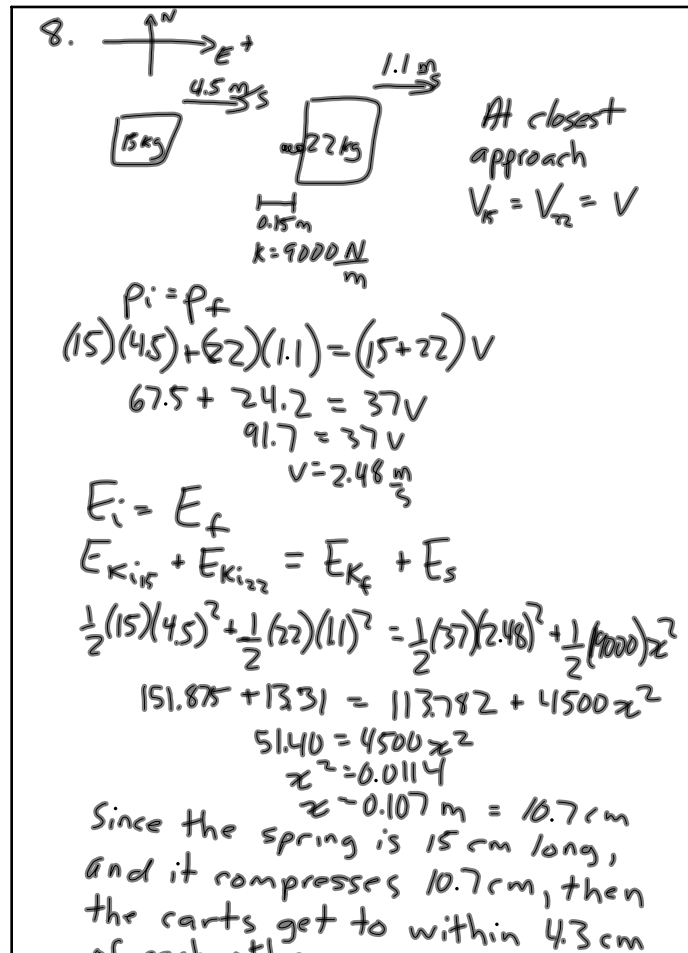 8.
N
E +
4.5 m/s
1.1 m/s
15kg
22kg
At closest
approach
V₁₅ = V₂₂ = V
0.15m
k = 9000 N/m
Pi = Pf
(15)(4.5) + (22)(1.1) = (15+22) V
67.5 + 24.2 = 37v
91.7 = 37v
v = 2.48 m/s
Ei = Ef
E_Ki₁₅ + E_Ki₂₂ = E_Kf + Es
1/2(15)(4.5)² + 1/2(22)(1.1)² = 1/2(37)(2.48)² + 1/2(9000)x²
151.875 + 13.31 = 113.782 + 4500x²
51.40 = 4500x²
x² = 0.0114
x = 0.107 m = 10.7 cm
Since the spring is 15 cm long,
and it compresses 10.7 cm, then
the carts get to within 4.3 cm